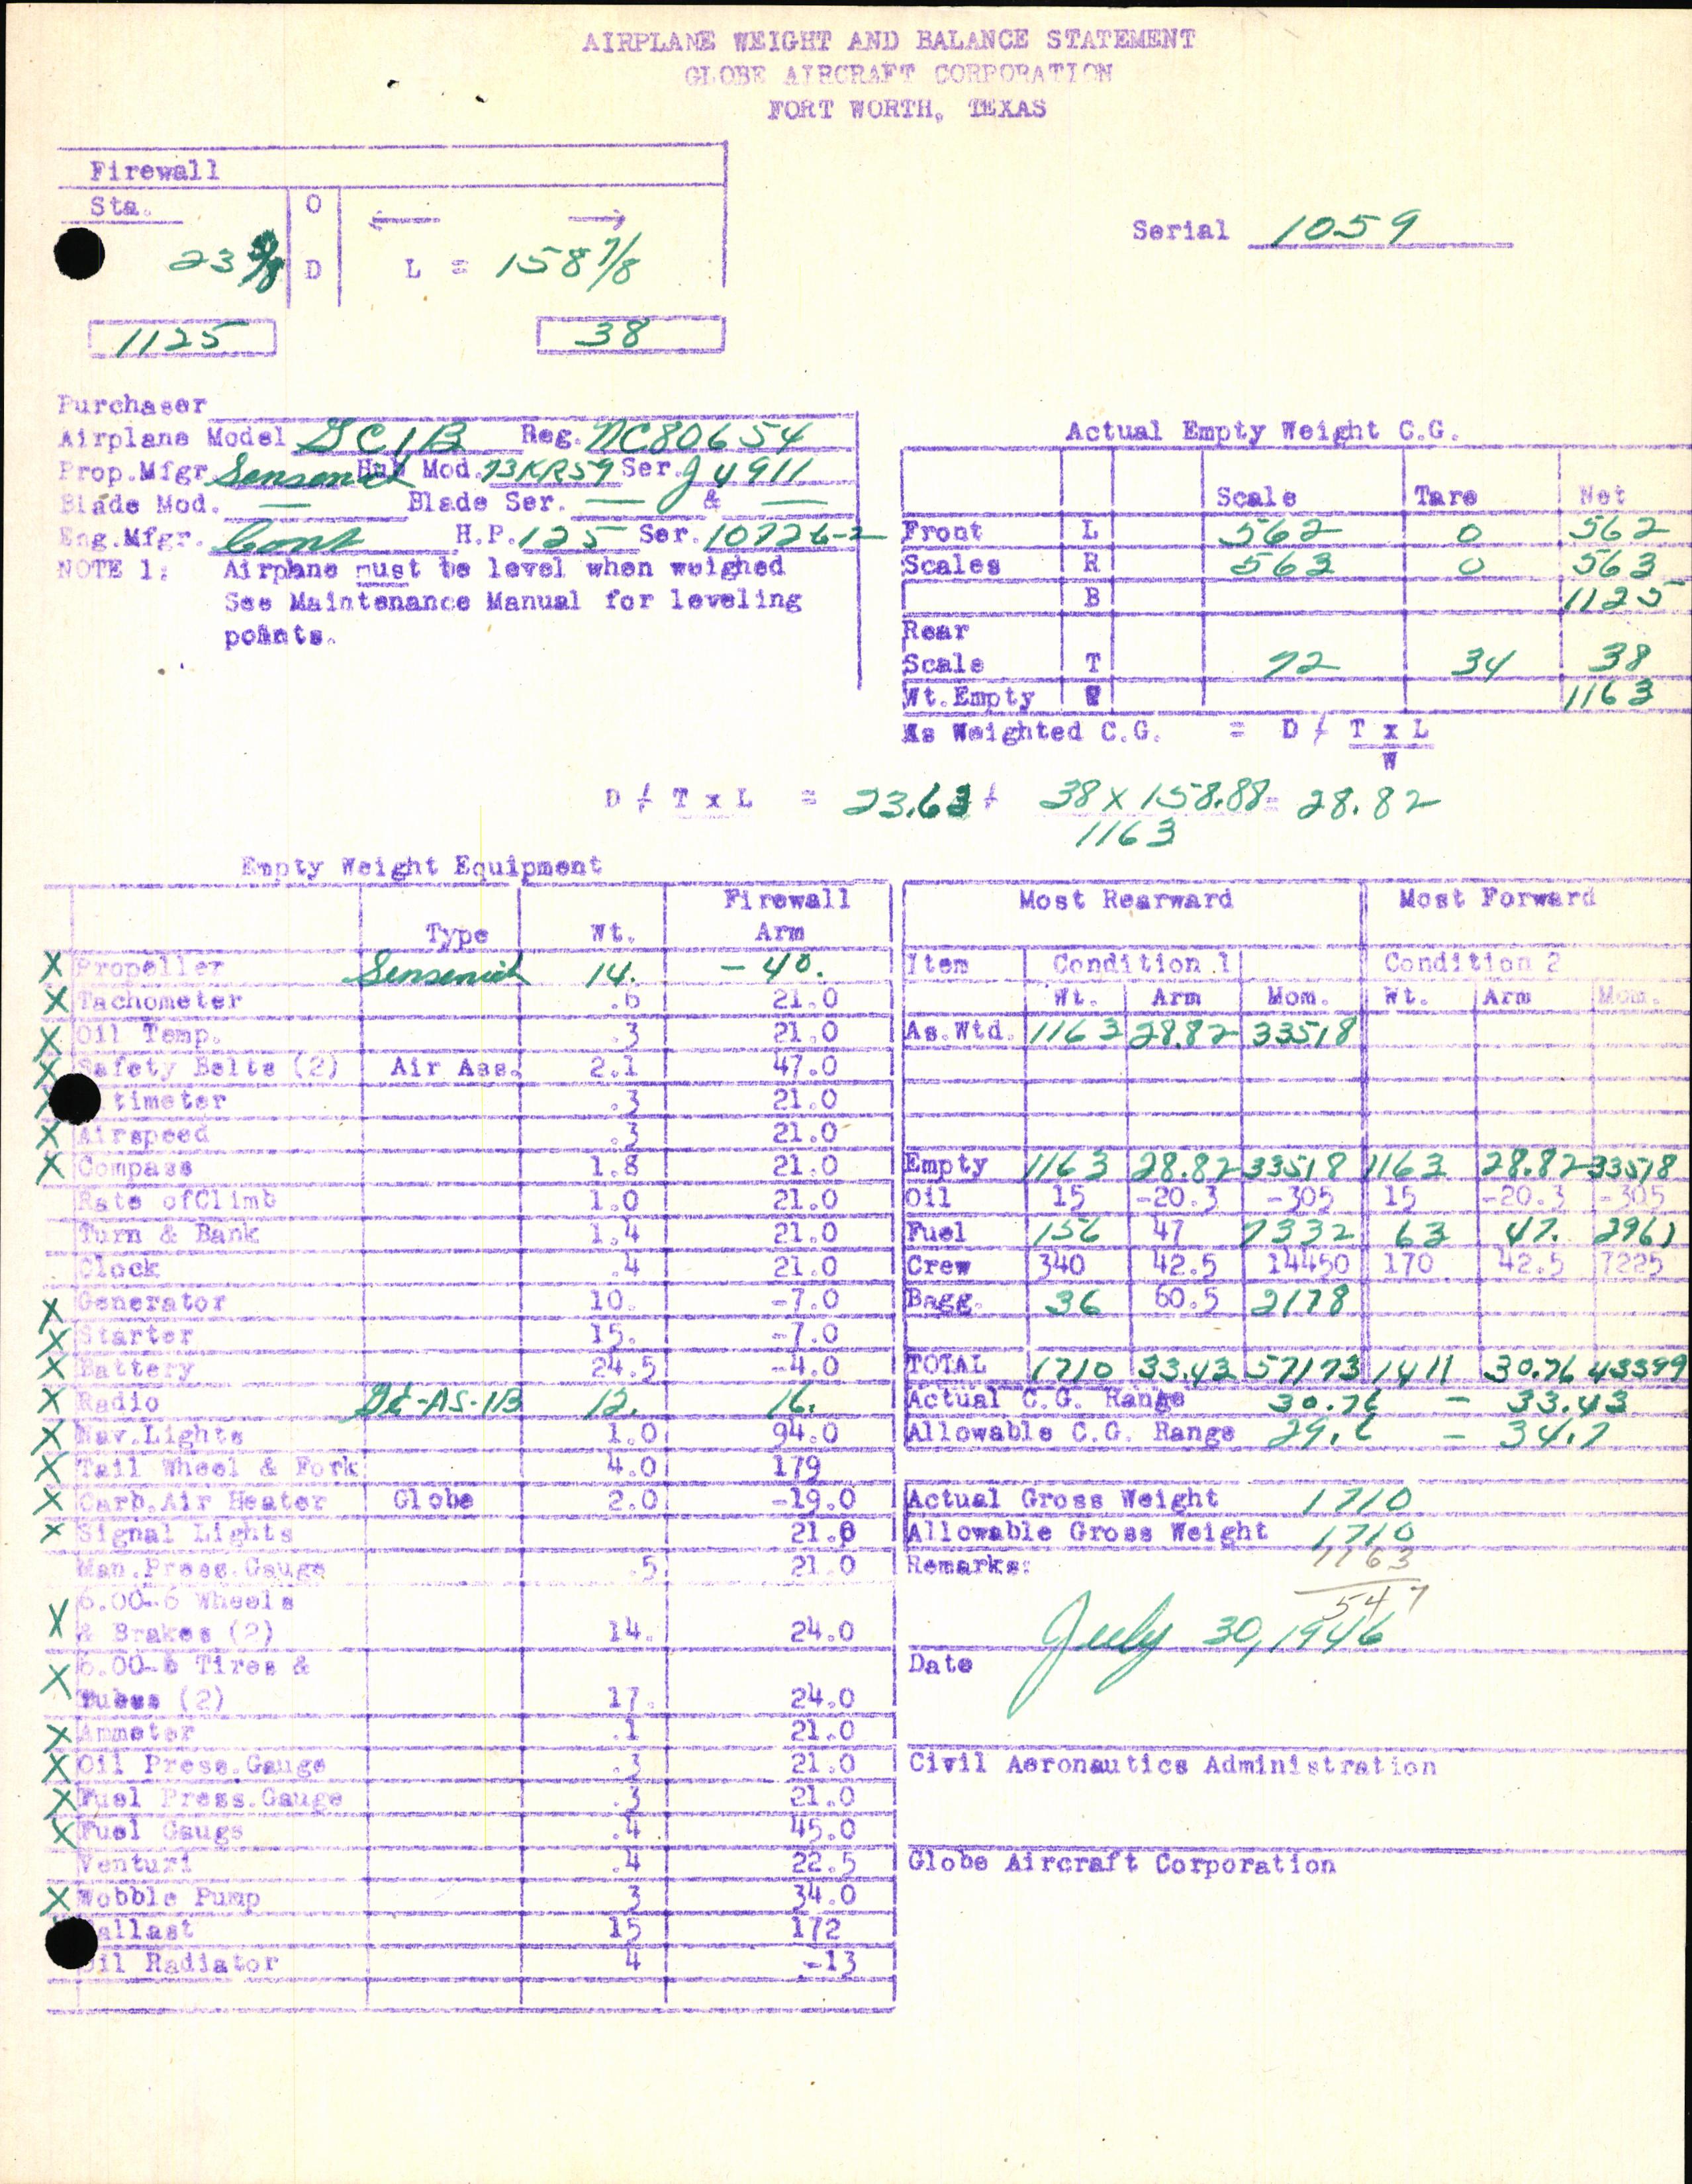 AIRPLANE WEIGHT AND BALANCE STATEMENT
GLOBE AIRCRAFT CORPORATION
FORT WORTH, TEXAS
Firewall
Sta. O
23 D L = 158 7/8
Serial 1059
1125 38
Purchaser
Airplane Model GC1B Reg. NC80654
Prop.Mfgr Sensenich Hub Mod. 73KR59 Ser. J4911
Blade Mod. — Blade Ser. — & —
Eng.Mfgr. Cont H.P. 125 Ser. 10726-2
NOTE 1: Airplane must be level when weighed
See Maintenance Manual for leveling
points.
Actual Empty Weight C.G.
Scale Tare Net
Front L 562 0 562
Scales R 563 0 563
B 1125
Rear
Scale T 72 34 38
Wt.Empty W 1163
As Weighted C.G. = D / T x L
W
D / T x L = 23.63 / 38 x 158.88 = 28.82
1163
Empty Weight Equipment
Type Wt. Firewall Arm
X Propeller Sensenich 14. -40.
X Tachometer .6 21.0
X Oil Temp. .3 21.0
X Safety Belts (2) Air Ass. 2.1 47.0
X timeter .3 21.0
X Airspeed .3 21.0
X Compass 1.8 21.0
Rate ofClimb 1.0 21.0
Turn & Bank 1.4 21.0
Clock .4 21.0
X Generator 10. -7.0
X Starter 15. -7.0
X Battery 24.5 -4.0
X Radio GE-AS-1B 12. 16.
X Nav.Lights 1.0 94.0
X Tail Wheel & Fork 4.0 179
X Carb.Air Heater Globe 2.0 -19.0
X Signal Lights 21.0
Man.Press.Gauge .5 21.0
6.00-6 Wheels
X & Brakes (2) 14. 24.0
X 6.00-6 Tires &
Tubes (2) 17. 24.0
X Ammeter .1 21.0
X Oil Press.Gauge .3 21.0
X Fuel Press.Gauge .3 21.0
X Fuel Gauge .4 45.0
Venturi .4 22.5
X Wobble Pump 3 34.0
allast 15 172
il Radiator 4 -13
Most Rearward Most Forward
Item Condition 1 Condition 2
Wt. Arm Mom. Wt. Arm Mom.
As.Wtd. 1163 28.82 33518
Empty 1163 28.82 33518 1163 28.82 33518
Oil 15 -20.3 -305 15 -20.3 -305
Fuel 156 47 7332 63 47. 2961
Crew 340 42.5 14450 170 42.5 7225
Bagg. 36 60.5 2178
TOTAL 1710 33.43 57173 1411 30.76 43399
Actual C.G. Range 30.76 - 33.43
Allowable C.G. Range 29.6 - 34.7
Actual Gross Weight 1710
Allowable Gross Weight 1710
Remarks: 1163
547
July 30, 1946
Date
Civil Aeronautics Administration
Globe Aircraft Corporation